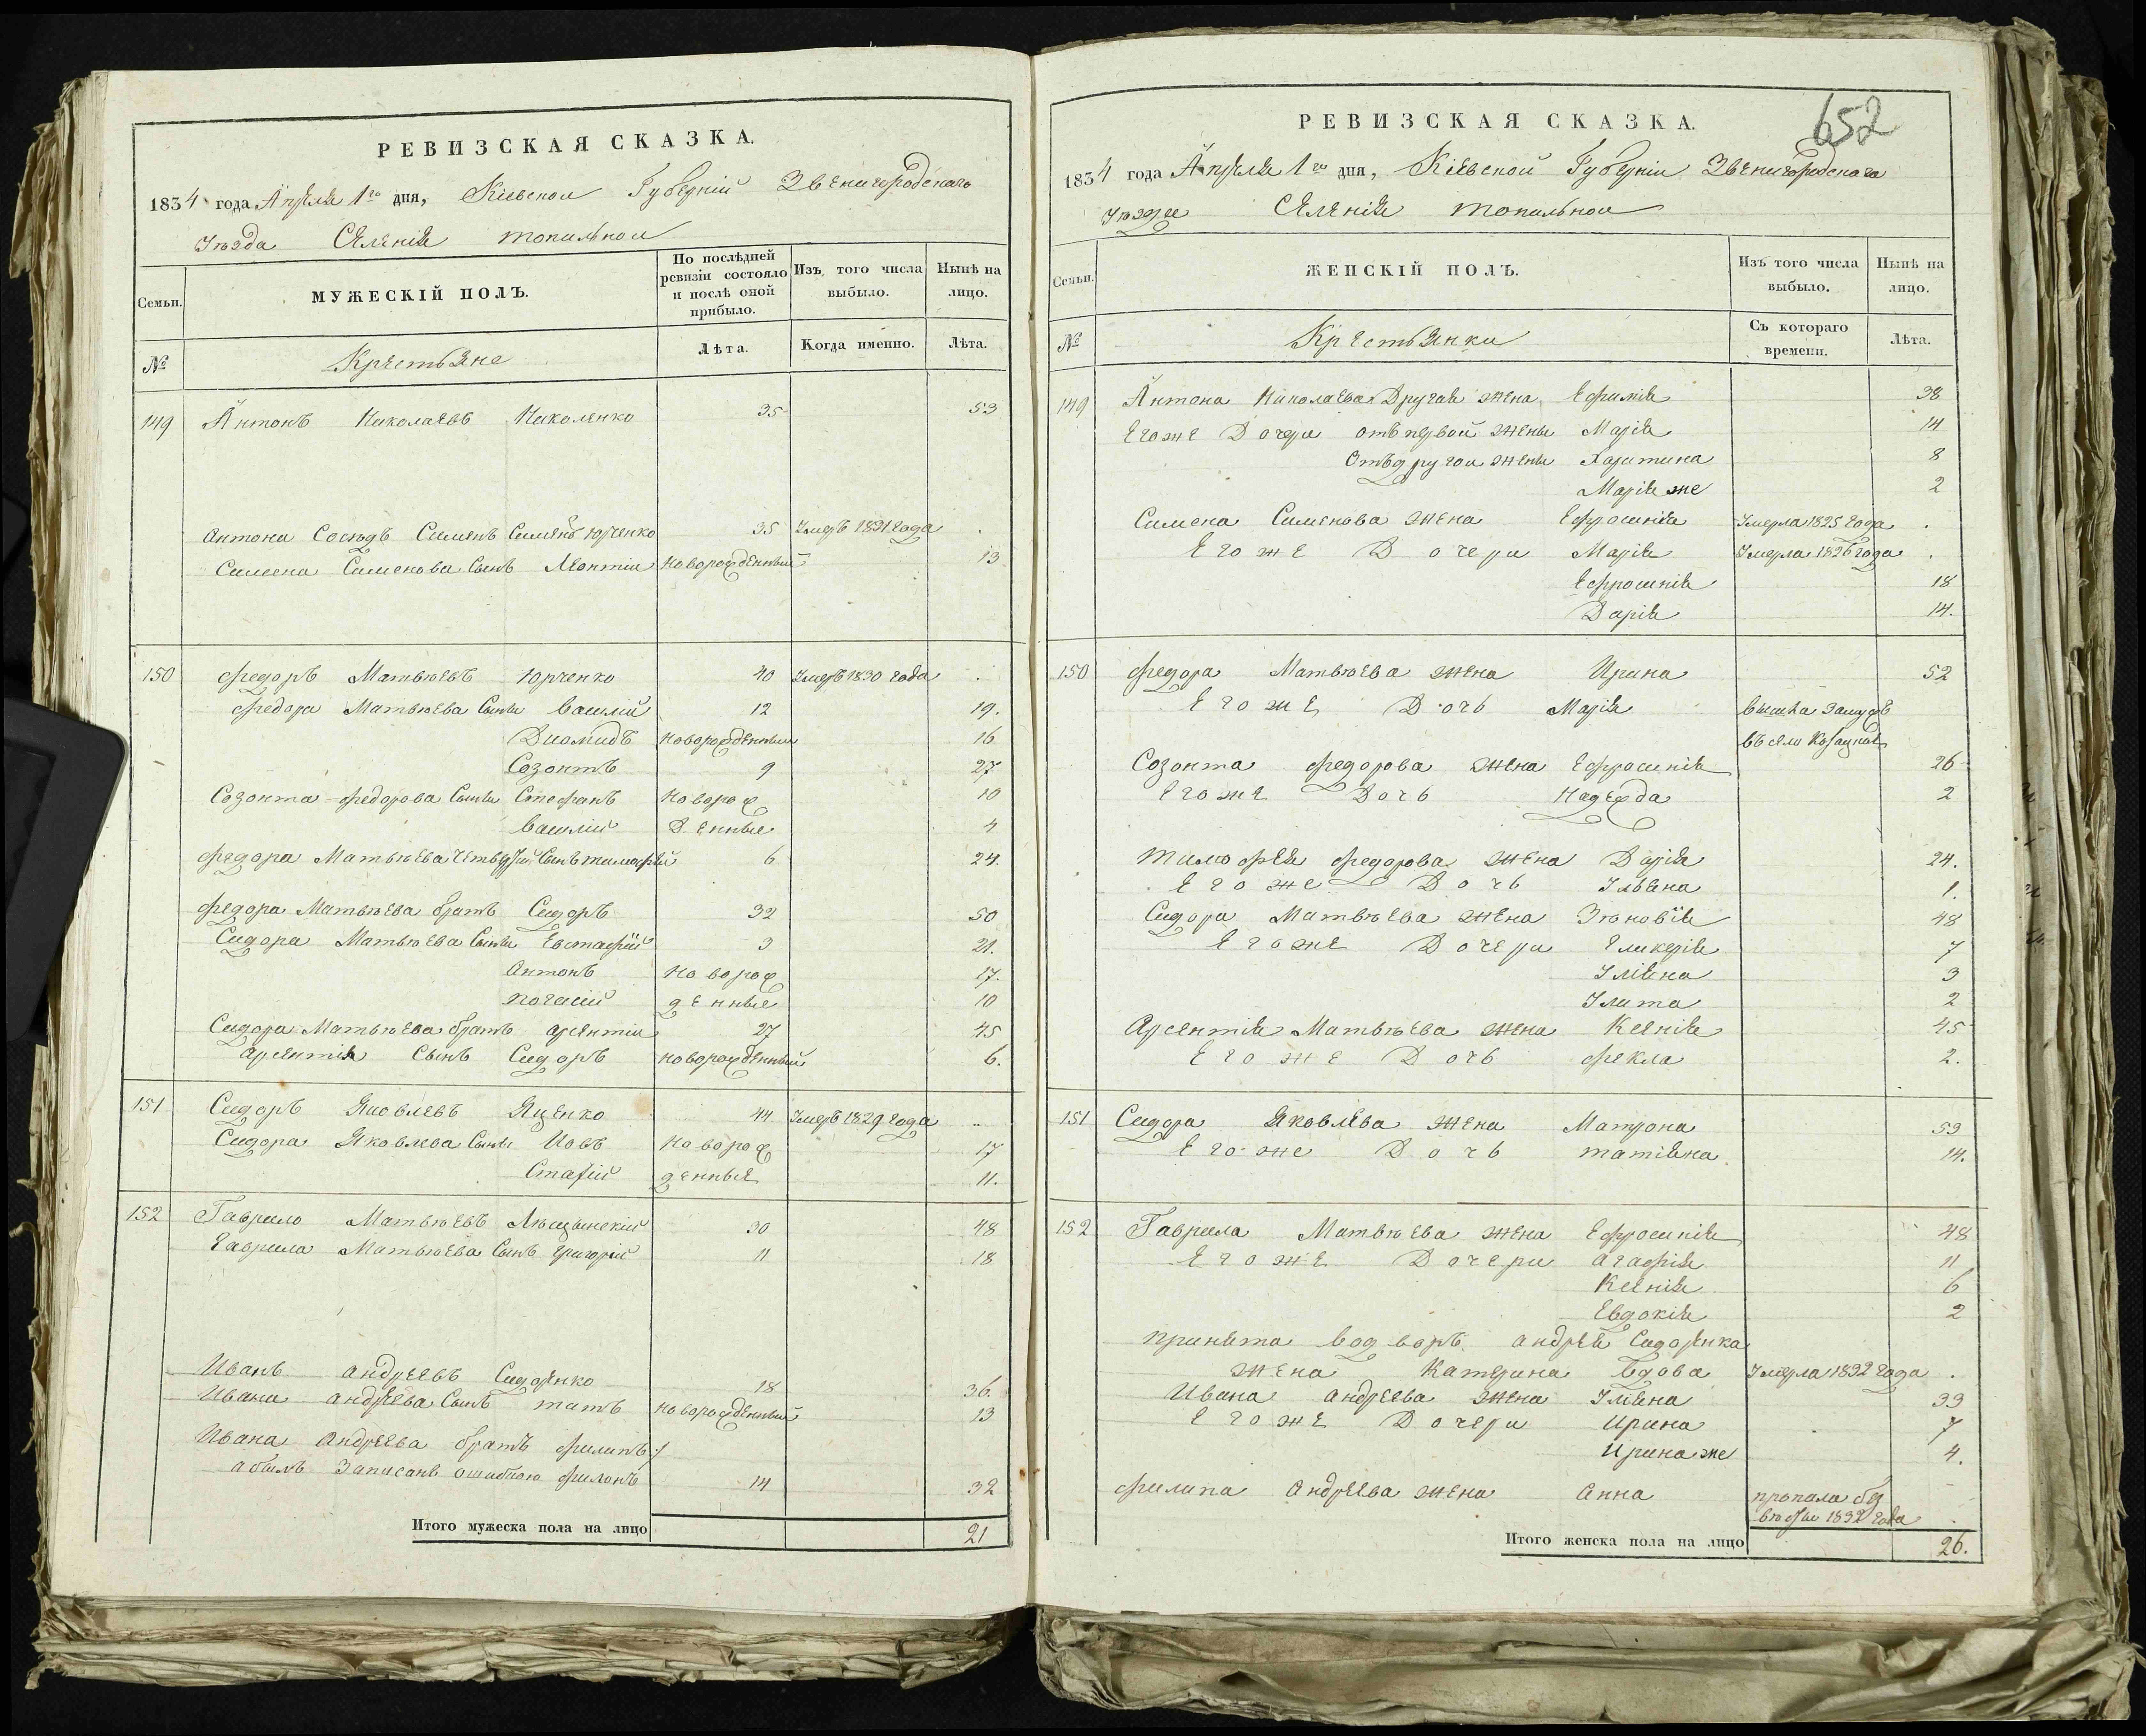 РЕВИЗСКАЯ СКАЗКА.
1834 года Апреля 1го дня, Кіевской Губерніи Звенигородскаго
Уѣзда Селенія Топильной
Семьи.
МУЖЕСКІЙ ПОЛЪ.
По послѣдней ревизіи состояло и послѣ оной прибыло.
Изъ того числа выбыло.
Нынѣ на лицо.
№
Крестьяне
Лѣта.
Когда именно.
Лѣта.
149 Антонъ Николаевъ Николенко 35 53
Антона Сосѣдъ Сименъ Семеновъ Юрченко 35 Умеръ 1831 года .
Симена Сименова Сынъ Леонтій новорожденный 13
150 Федоръ Матвѣевъ Юрченко 40 Умеръ 1830 года .
Федора Матвѣева Сыны Василій 12 19.
Диомидъ новорожденный 16
Созонтъ 9 27
Созонта Федорова Сыны Стефанъ новорож 10
Василій денные 4
Федора Матвѣева четвертый Сынъ тимофей 6 24.
Федора Матвѣева братъ Сидоръ 32 50
Сидора Матвѣева Сыны Евстафій 3 21.
Антонъ новорож 17.
денные 10
Сидора Матвѣева братъ Арсентій 27 45
Арсентія Сынъ Сидоръ новорожденный 6.
151 Сидоръ Яковлевъ Яценко 44 Умеръ 1829 года ..
Сидора Яковлева Сыны Иовъ новорож 17
денные 11.
152 Гаврило Матвѣевъ 30 48
Гаврила Матвѣева Сынъ Григорій 11 18
Иванъ Андреевъ Сидоренко 18 36
Ивана Андреева Сынъ новорожденный 13
Ивана Андреева братъ Филипъ
а былъ записанъ ошибкою Филонъ 14 32
Итого мужеска пола на лицо 21
652
РЕВИЗСКАЯ СКАЗКА.
1834 года Апреля 1го дня, Кіевской Губерніи Звенигородскаго
Уѣзда Селенія Топильной
Семьи.
ЖЕНСКІЙ ПОЛЪ.
Изъ того числа выбыло.
Нынѣ на лицо.
№
Крестьянки
Съ котораго времени.
Лѣта.
149 Антона Николаева Другая жена Ефимія 38
Егоже Дочери отъ первой жены Марія 14
Отъ другои жены Харитина 8
Марія же 2
Симена Сименова жена Ефросинія Умерла 1825 года .
Егоже Дочери Марія Умерла 1826 года .
Ефросинія 18
Дарія 14.
150 Федора Матвѣева жена Ирина 52
Егоже Дочь Марія вышла замужъ
въ село
Созонта Федорова жена Ефросинія 26
Егоже Дочь Надежда 2
Тимофея Федорова жена Дарія 24.
Егоже Дочь Ульяна 1.
Сидора Матвѣева жена Зѣновія 48
Егоже Дочери Гликерія 7
Уліяна 3
Улита 2
Арсентія Матвѣева жена Ксенія 45
Егоже Дочь Фекла 2.
151 Сидора Яковлева жена Матрона 53
Егоже Дочь татіяна 14.
152 Гаврила Матвѣева жена Ефросинія 48
Егоже Дочери Агафія 11
Ксенія 6
Евдокія 2
принята во дворъ Андрея Сидоренка
жена Катерина Вдова Умерла 1832 года .
Ивана Андреева жена Уліяна 33
Егоже Дочери Ирина 7
Ирина же 4.
Филипа Андреева жена Анна пропала без
вѣсти 1832 года .
Итого женска пола на лицо 26.